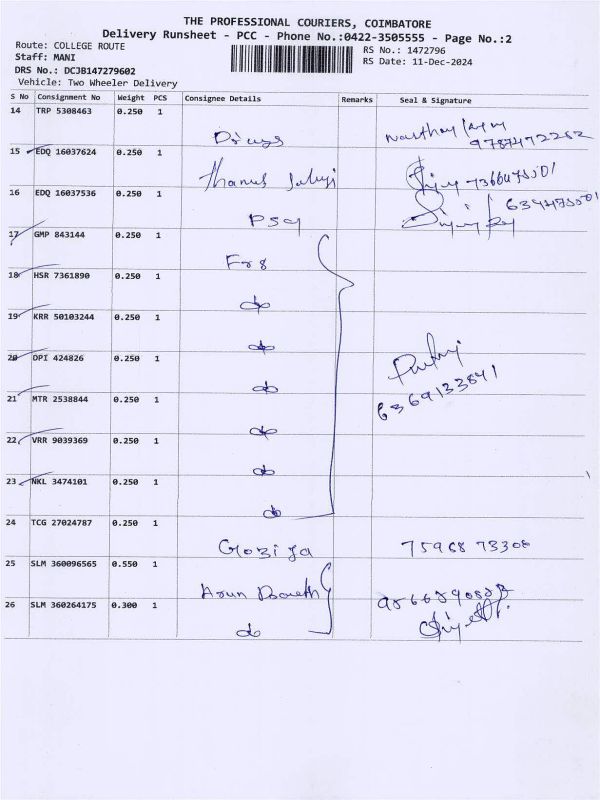 THE PROFESSIONAL COURIERS, COIMBATORE
Delivery Runsheet - PCC - Phone No.:0422-3505555 - Page No.:2
Route: COLLEGE ROUTE
RS No.: 1472796
Staff: MANI
RS Date: 11-Dec-2024
DRS No.: DCJB147279602
Vehicle: Two Wheeler Delivery
S No Consignment No Weight PCS Consignee Details Remarks Seal & Signature
14 TRP 5308463 0.250 1
9787472262
15 EDQ 16037624 0.250 1
16 EDQ 16037536 0.250 1
PSG
17 GMP 843144 0.250 1
18 HSR 7361890 0.250 1
do
19 KRR 50103244 0.250 1
do
20 OPI 424826 0.250 1
do
6369133841
21 MTR 2538844 0.250 1
do
22 VRR 9039369 0.250 1
do
23 NKL 3474101 0.250 1
do
24 TCG 27024787 0.250 1
75968 73308
25 SLM 360096565 0.550 1
Arun
26 SLM 360264175 0.300 1
do